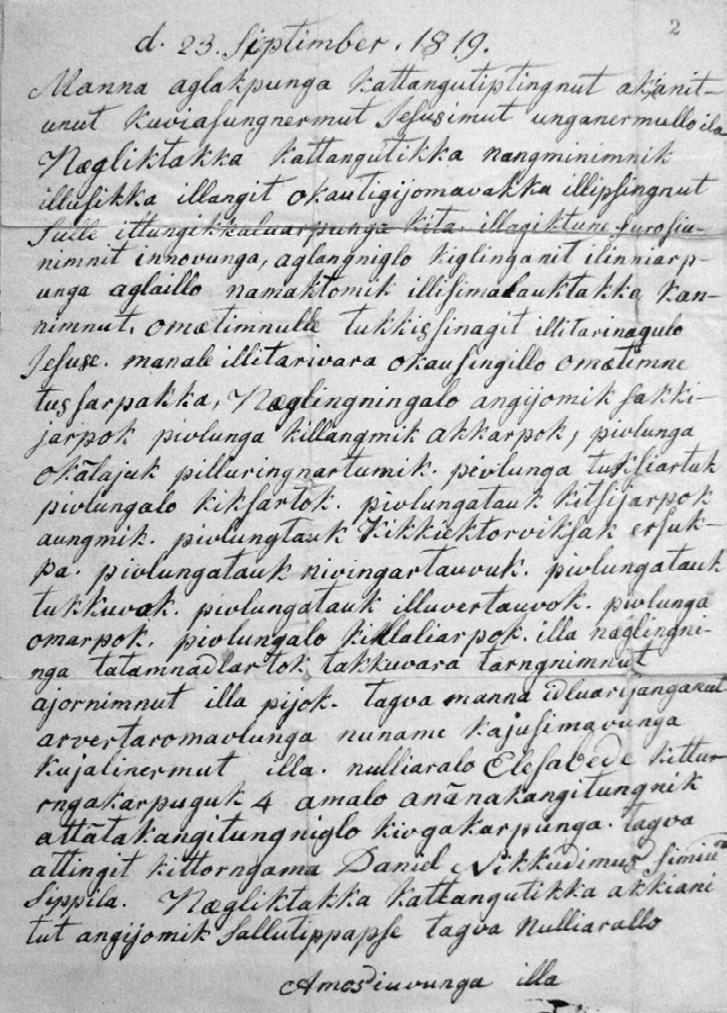 2
d. 23. Septimber. 1819.
Manna aglakpunga kattangutiptingnut akianit-
unut kuviasungnermut Jesusimut unganermullo ila
Nægliktakka kattangutikka nangminimnik
illusikka illangit okautigijomavakka illipsingnut
Sulle ittungikkaluarpunga kita. illagiktune, surosiu-
nimnit innovunga, aglangniglo kiglinganit ilinniarp-
unga aglaillo namaktomik illisimalauktakka kan-
nimnut. omætimnulle tukkissinagit illitarinagulo
Jesuse. manale illitarivara okausingillo omætimne
tussarpakka, Næglingningalo angijomik sakki-
jarpok pivlunga killangmik akkarpok, pivlunga
okãlajuk pilluringnartumik. pivlunga tuksiartuk
pivlungalo kiksartok. pivlungatauk kitsijarpok
aungmik. pivlungtauk Kikkiektorviksak ersuk-
pa. pivlungatauk nivingartauvuk. pivlungatauk
tukkuvok. pivlungatauk illuvertauvok. pivlunga
omarpok. pivlungalo killaliarpok. illa naglingni-
nga tatamnadlartok takkuvara tarngnimnut
ajornimnut illa pijok. tagva manna idluarijangakut
arvertaromavlunga nuname kajusimavunga
kujalinermut illa. nulliaralo Elesabede kittur-
rngakarpuguk 4 amalo anãnakangitungnik
attãtakangitungniglo kivgakarpunga. tagva
attingit kittorngama Daniel Nikkudimus Simiu
Sippila. Nægliktakka kattangutikka akkiani
tut angijomik sallutippapse tagva nulliarallo
Amosiuvunga illa